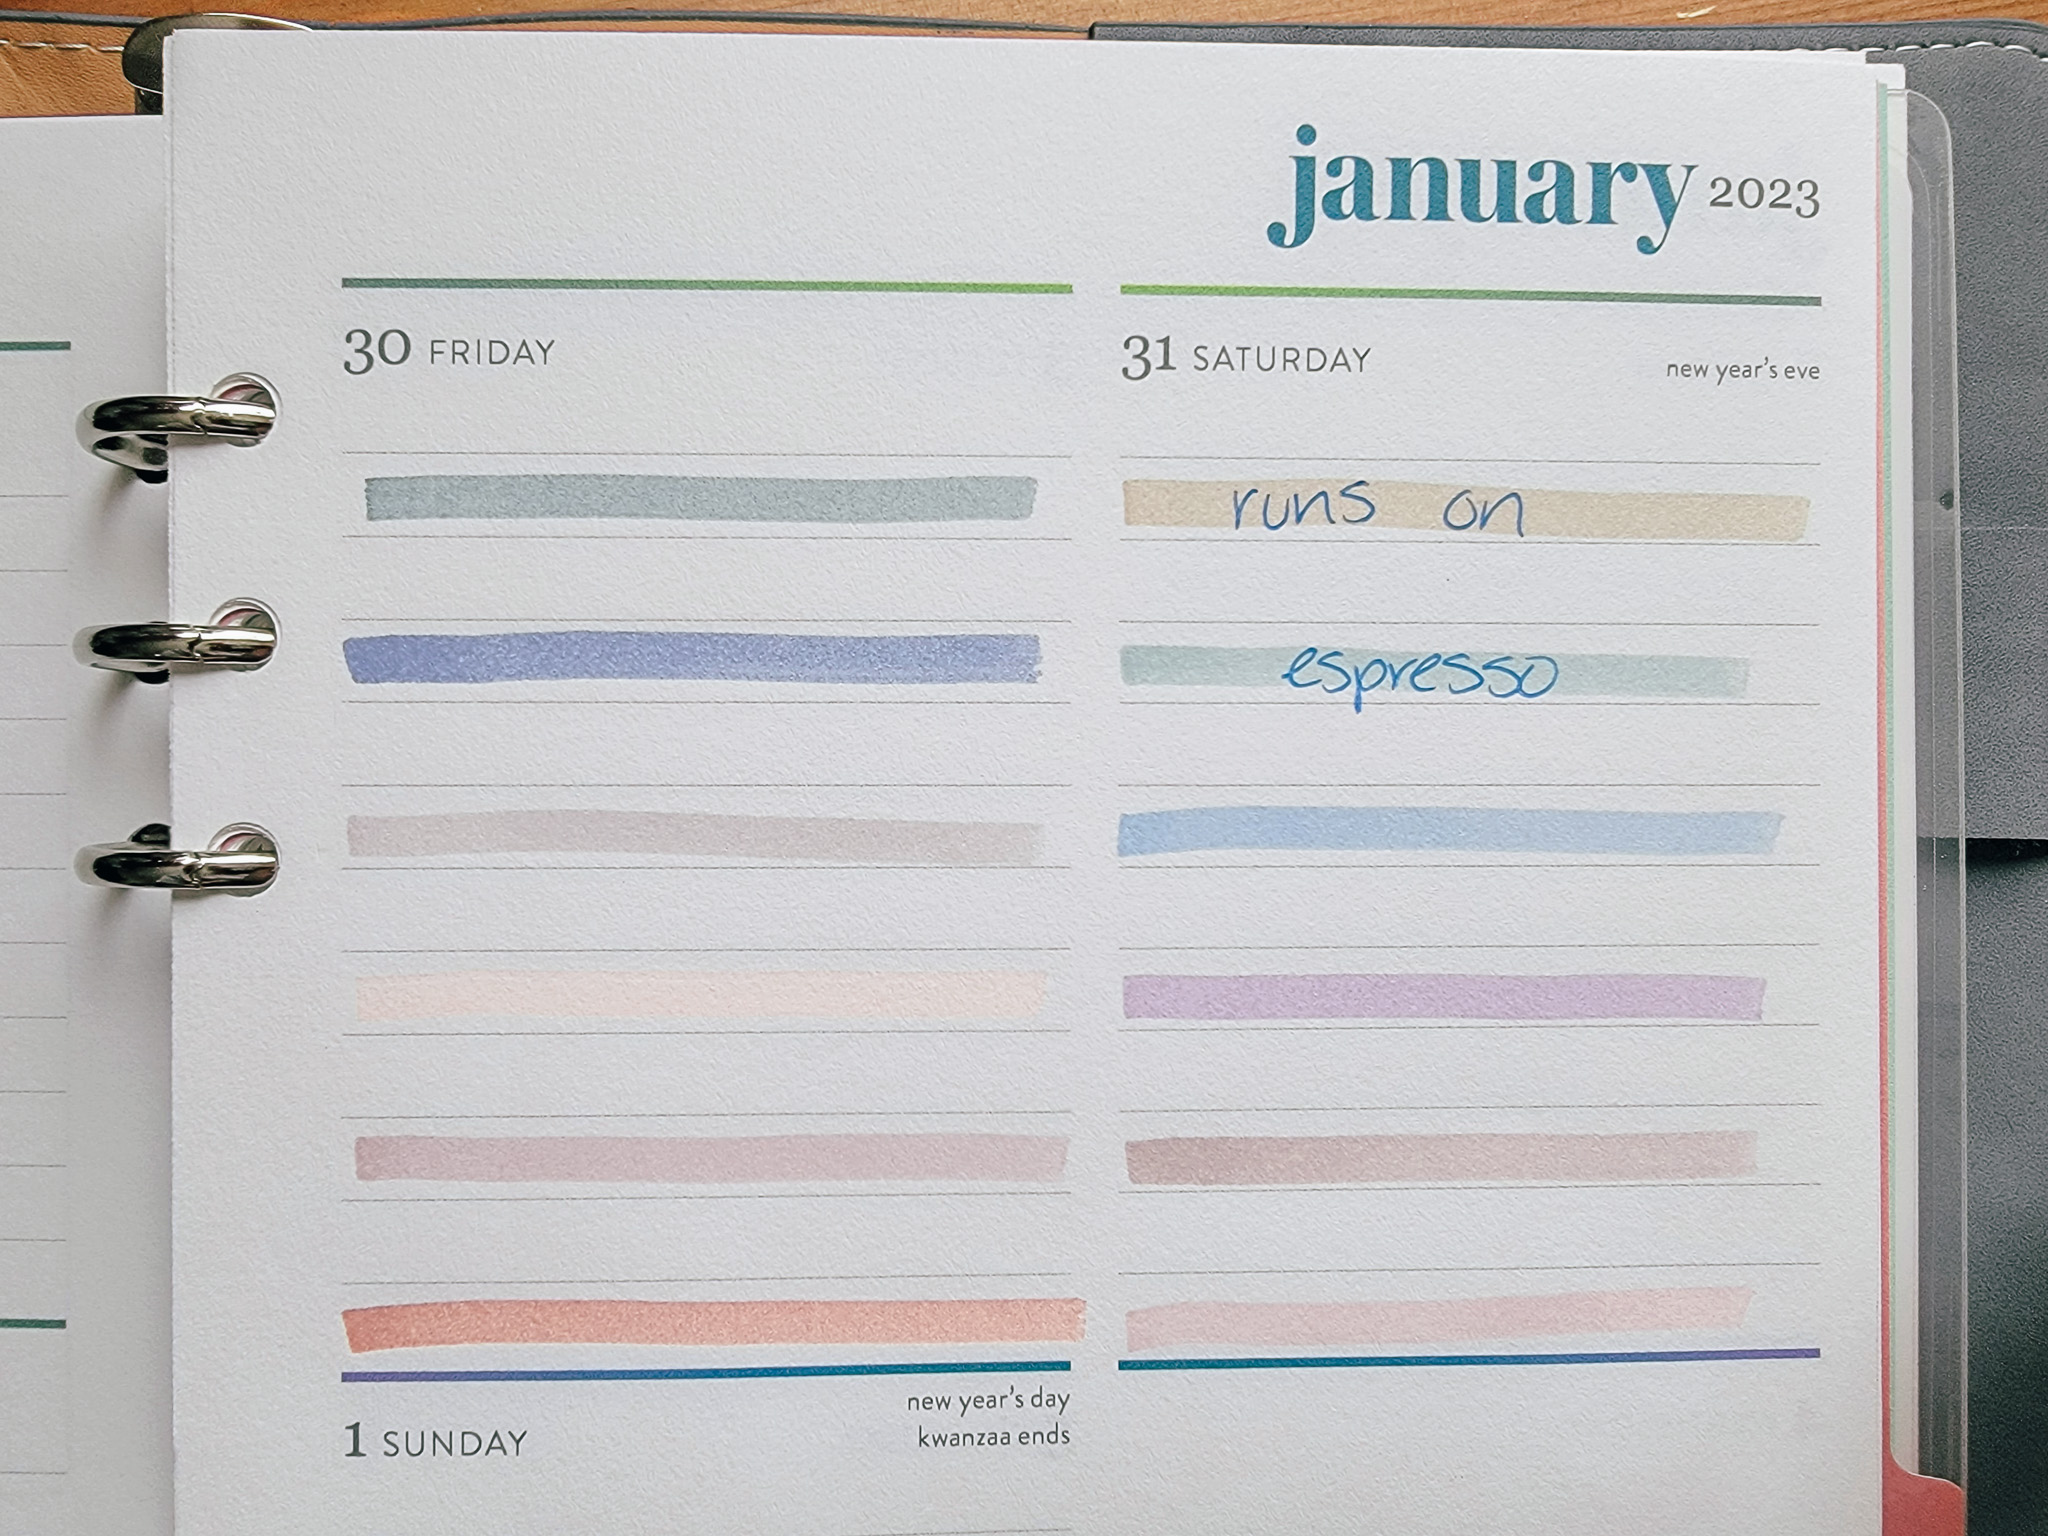 january 2023
30 FRIDAY
31 SATURDAY new year's eve
runs on
espresso
new year's day
kwanzaa ends
1 SUNDAY